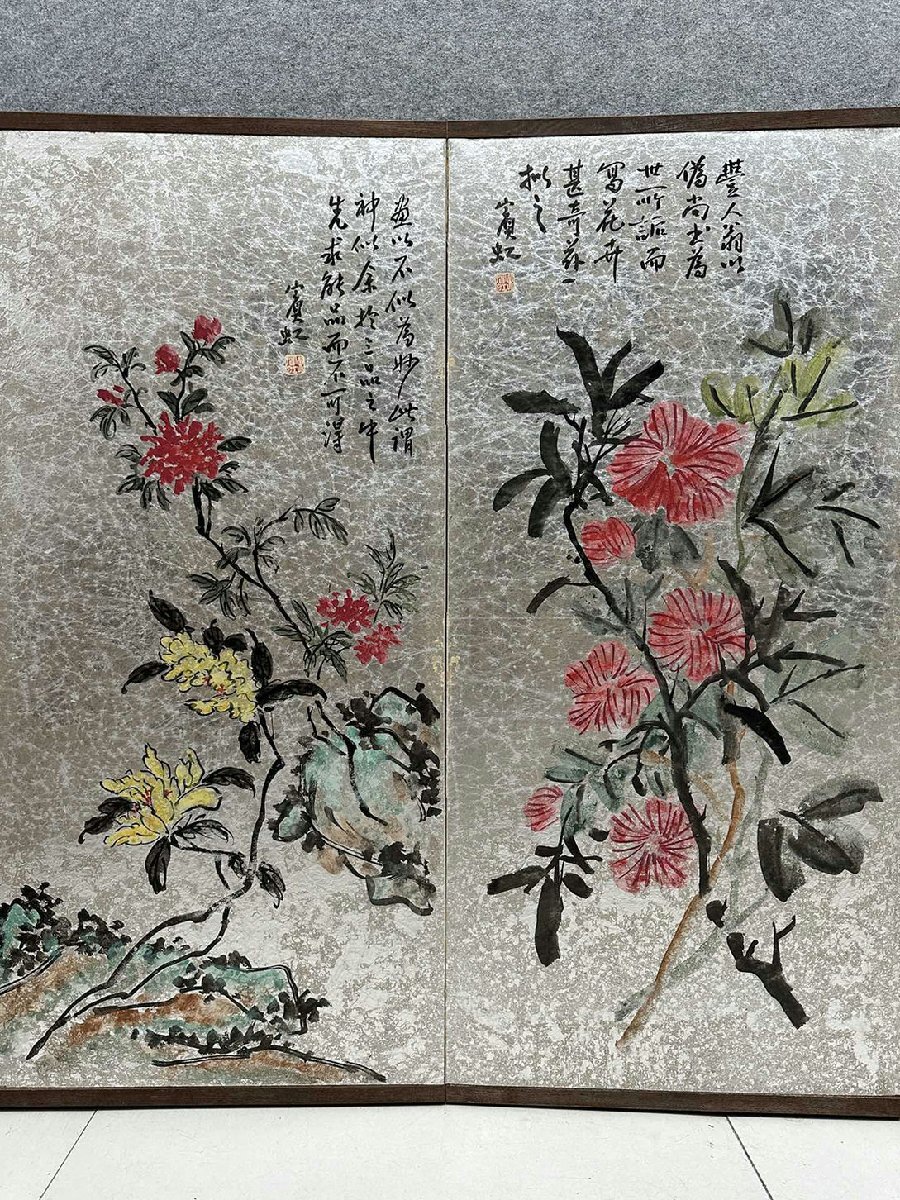 豐人翁以
偽尚書為
世所詬而
寫花卉
甚奇茲一
拟之
賓虹
畫以不似為妙此謂
神似余於三品之中
先求能品而不可得
賓虹